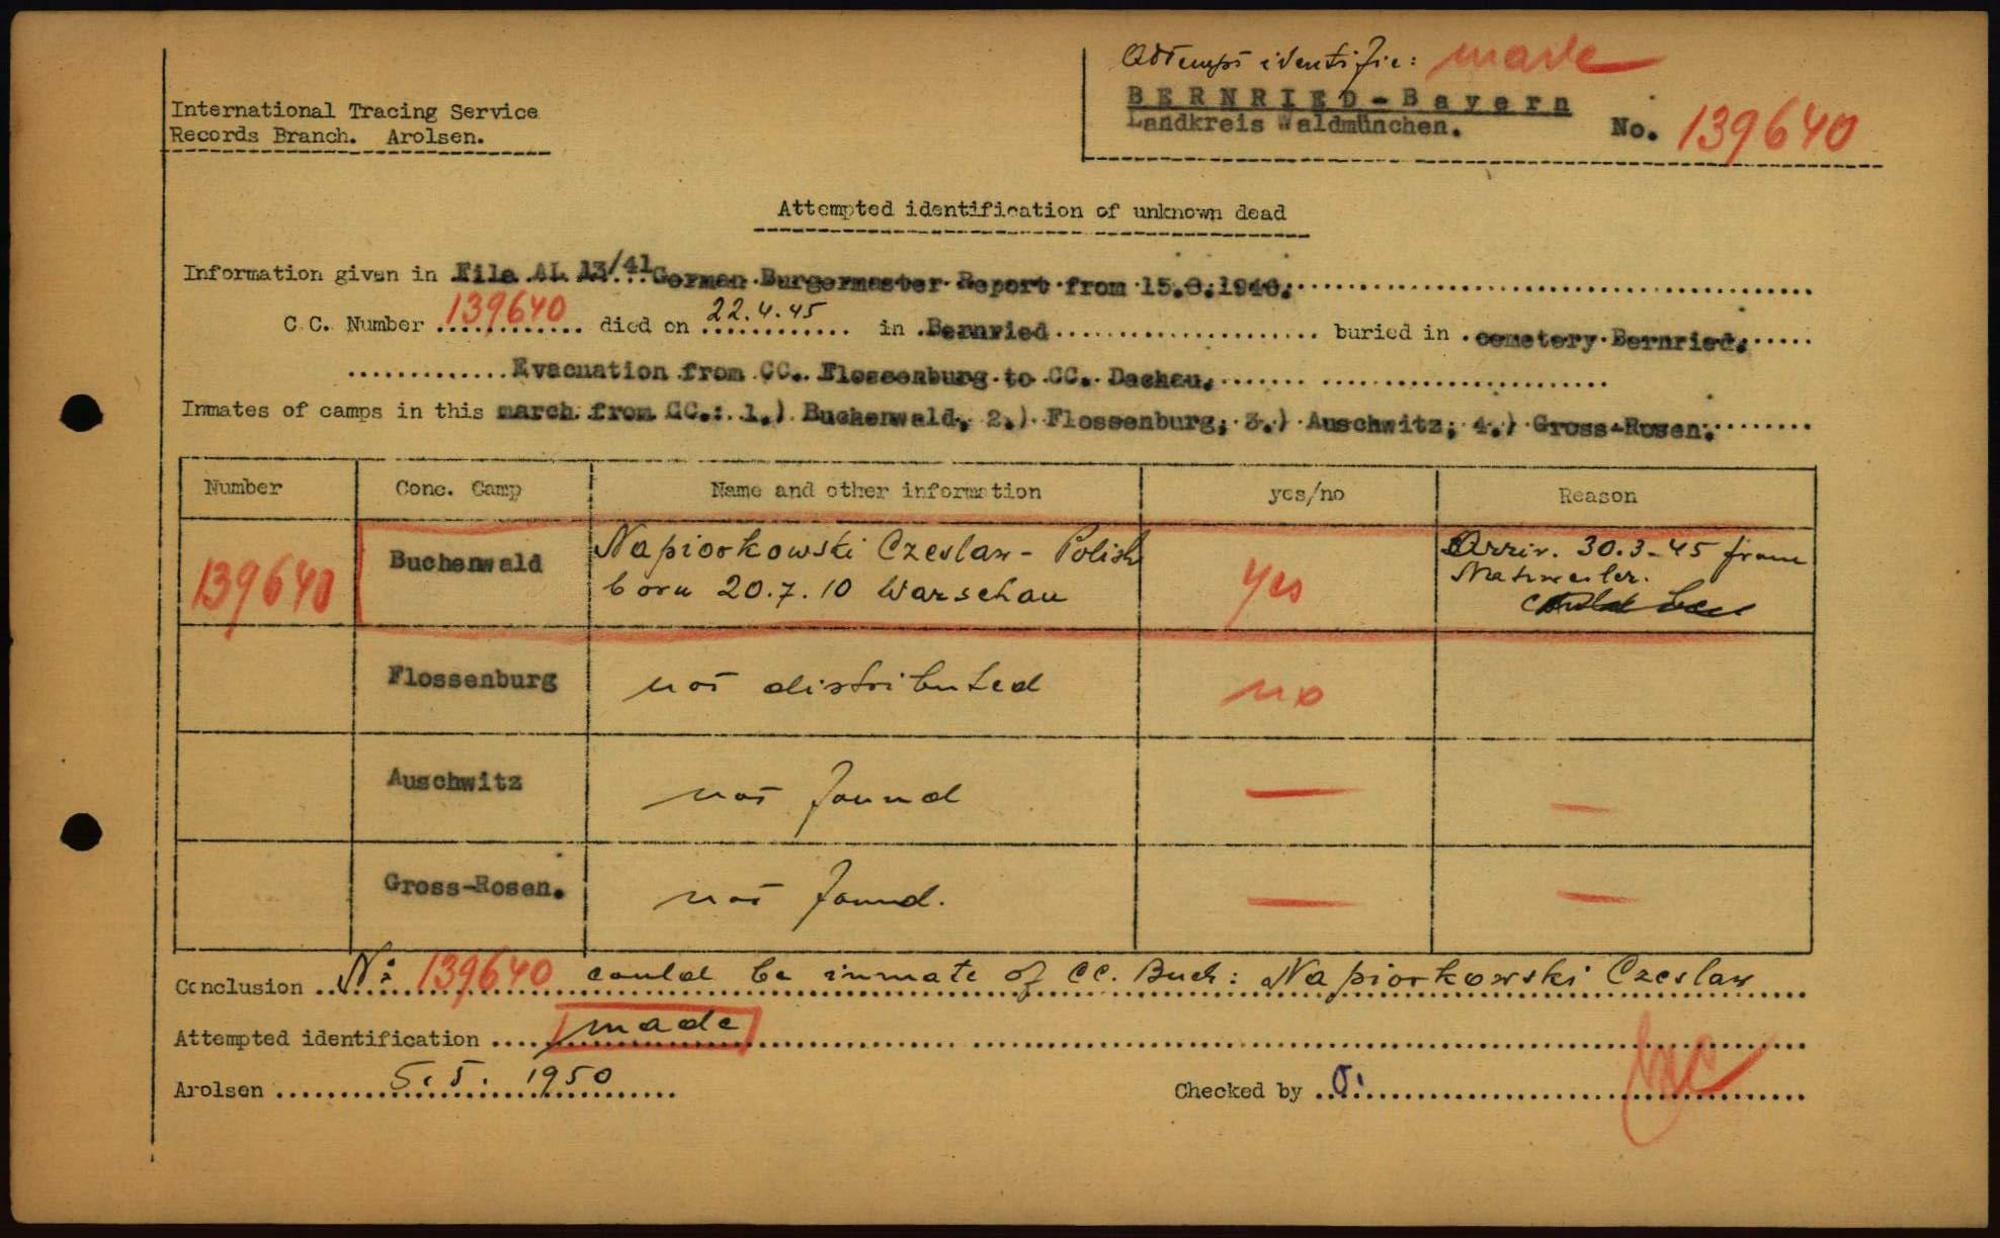 Attempt identific: made
BERNRIED-Bayern
Landkreis Waldmünchen.
No. 139640
International Tracing Service
Records Branch. Arolsen.
Attempted identification of unknown dead
Information given in File AL 13/41 German Burgermaster Report from
C.C. Number 139640 died on 22.4.45 in Bernried buried in cemetery Bernried.
Evacuation from CC. Flossenburg to CC. Dachau.
Inmates of camps in this march from CC.: 1.) Buchenwald, 2.) Flossenburg; 3.) Auschwitz; 4.) Gross-Rosen.
Number Conc. Camp Name and other information yes/no Reason
139640 Buchenwald Napiorkowski Czeslaw - Polish born 20.7.10 Warschau yes Arriv. 30.3-45 from Natzweiler.
Flossenburg not distributed no
Auschwitz not found — —
Gross-Rosen. not found. — —
Conclusion No: 139640 could be inmate of CC. Buch: Napiorkowski Czeslaw
Attempted identification made
Arolsen 5.5. 1950
Checked by